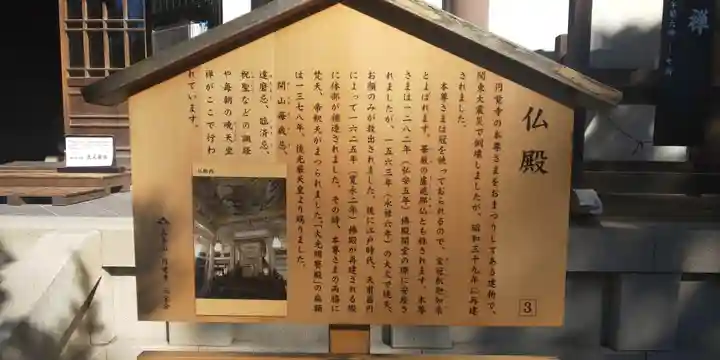 仏殿
円覚寺の本尊さまをおまつりしてある建物で、
関東大震災で倒壊しましたが、昭和三十九年に再建
されました。
本尊さまは冠を被っておられるので、宝冠釈迦如来
とよばれます。華厳の盧遮那仏とも称されます。本尊
さまは一二八二(弘安五年)佛殿開堂の際に安座さ
れましたが、一五六三年(永禄六年)の大火で焼失、
お顔のみが救出されました。後に江戸時代、
によって一六二五年(寛永二年)佛殿が再建される際
に体部が補造されました。その時、本尊さまの両脇に
梵天、帝釈天がまつられました。「大光明寳殿」の扁額
は一三七八年、後光厳天皇より賜りました。
開山毎歳忌、
達磨忌、臨済忌、
祝聖などの諷経
や毎朝の暁天坐
禅がここで行わ
れています。
3
禅